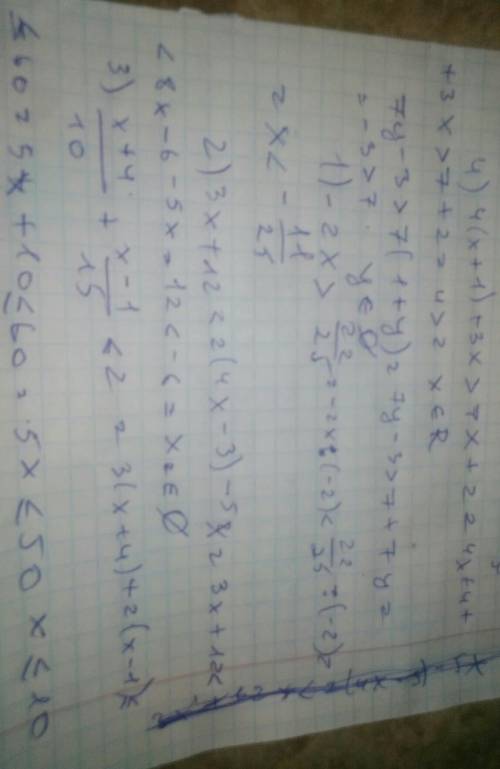 4) 4(x+1)+3x>7x+2=4x+4+
+3x>7+2=4>2 x∈R
7y-3>7(1+y)=7y-3>7+7y=
=-3>7. y∈∅
1) -2x> 22/25 =-2x:(-2)< 22/25 :(-2)=
=x< -11/25
2) 3x+12<2(4x-3)-5x=3x+12<
<8x-6-5x=12<-6=x=∈∅
3) x+4/10 + x-1/15 ≤2 =3(x+4)+2(x-1)≤
≤60=5x+10≤60=5x≤50 x≤10